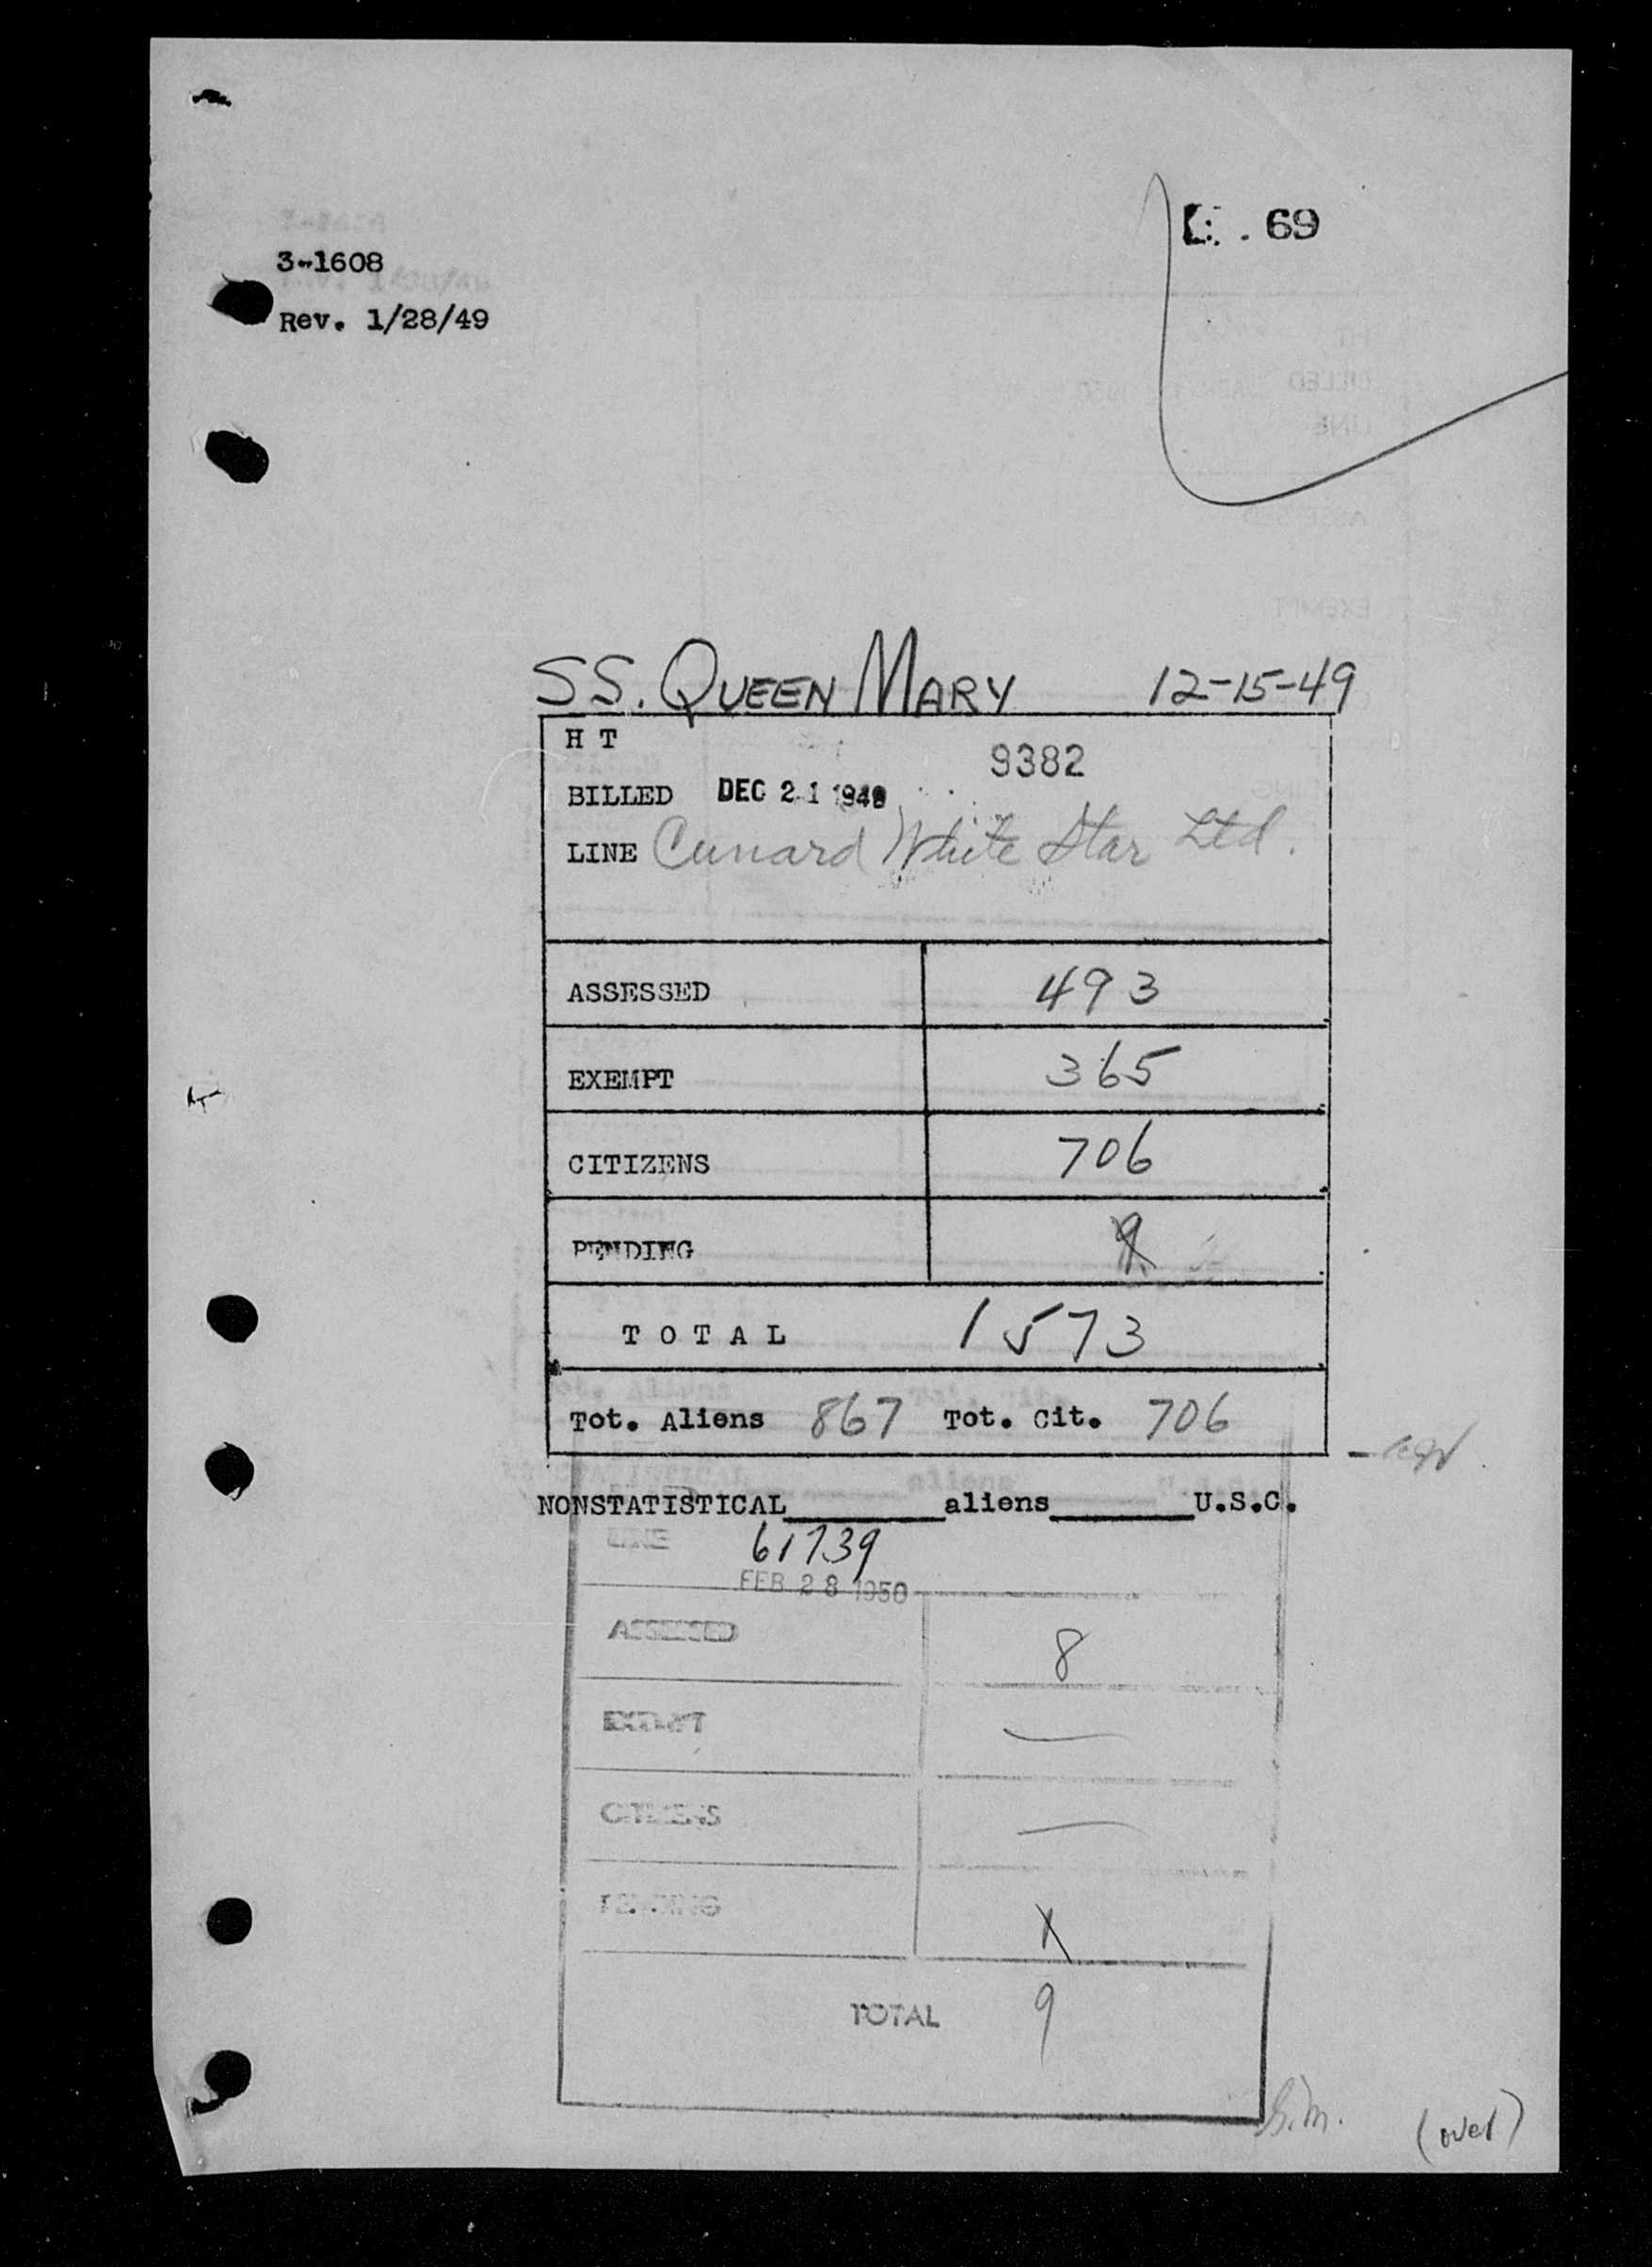 69
3-1608
Rev. 1/28/49
SS. QUEEN MARY 12-15-49
H T
9382
BILLED DEC 21 1949
LINE Cunard White Star Ltd.
ASSESSED 493
EXEMPT 365
CITIZENS 706
PENDING 9
TOTAL 1573
Tot. Aliens 867 Tot. Cit. 706
NONSTATISTICAL aliens U.S.C.
LINE 61739
FEB 28 1950
ASSESSED 8
EXEMPT —
CITIZENS —
PENDING
TOTAL 9
(over)